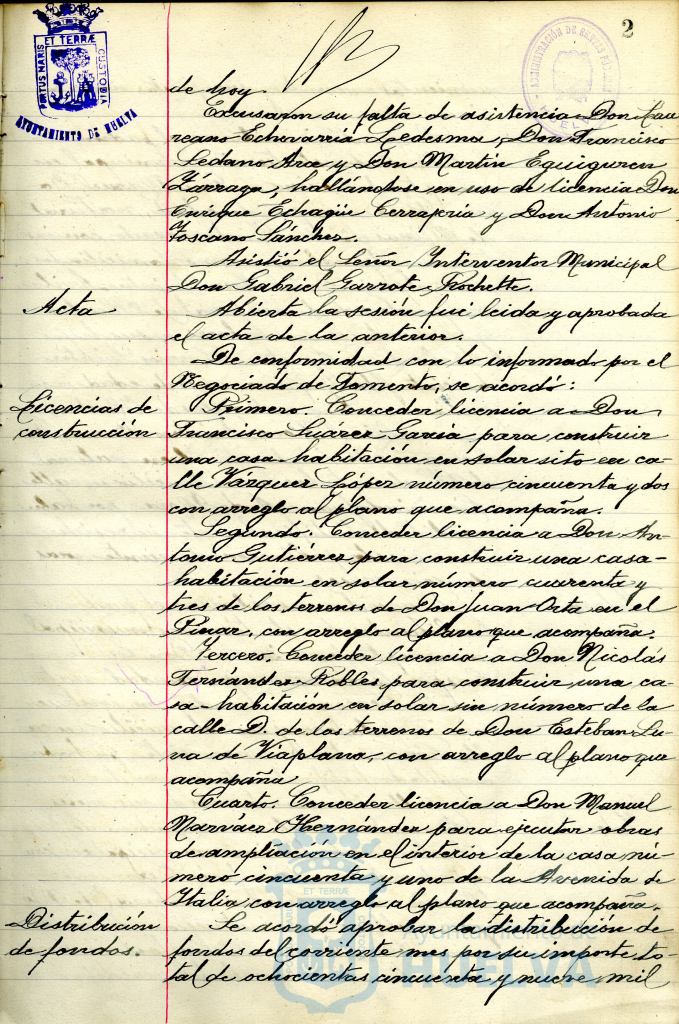 2
PORTUS MARIS ET TERRÆ CUSTODIA
AYUNTAMIENTO DE HUELVA
ADMINISTRACIÓN DE RENTAS
de hoy.
Excusaron su falta de asistencia Don Lau-
reano Echevarría Ledesma, Don Francisco
Sedano Arce y Don Martín Eguiguren
Zárraga, hallándose en uso de licencia Don
Enrique Echagüe Cerrajería y Don Antonio
Toscano Sánchez.
Asistió el Señor Interventor Municipal
Don Gabriel Garrote Rochette.
Acta
Abierta la sesión fué leida y aprobada
el acta de la anterior.
De conformidad con lo informado por el
Negociado de Fomento, se acordó:
Licencias de
construcción
Primero. Conceder licencia a Don
Francisco Suárez García para construir
una casa-habitación en solar sito en ca-
lle Vázquez López número cincuenta y dos
con arreglo al plano que acompaña.
Segundo. Conceder licencia a Don An-
tonio Gutiérrez para construir una casa-
habitación en solar número cuarenta y
tres de los terrenos de Don Juan Orta en el
Pinar, con arreglo al plano que acompaña.
Tercero. Conceder licencia a Don Nicolás
Fernández Robles para construir una ca-
sa-habitación en solar sin número de la
calle D. de los terrenos de Don Esteban Lu-
na de Viaplana, con arreglo al plano que
acompaña
Cuarto. Conceder licencia a Don Manuel
Narváez Hernández para ejecutar obras
de ampliación en el interior de la casa nú-
mero cincuenta y uno de la Avenida de
Italia con arreglo al plano que acompaña.
Distribución
de fondos.
Se acordó aprobar la distribución de
fondos del corriente mes por su importe to-
tal de ochocientas cincuenta y nueve mil
ET TERRÆ
HUELVA